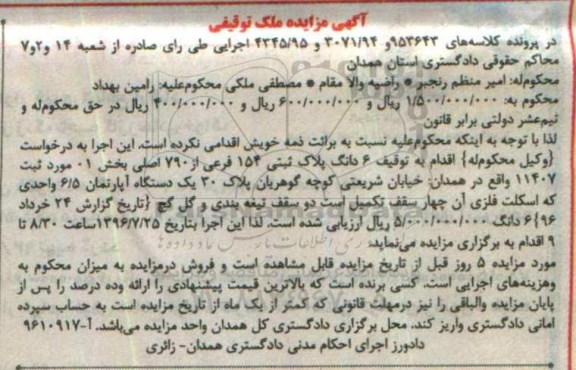 آگهی مزایده ملک توقیفی
در پرونده کلاسه‌های ۹۵۳۶۴۳و ۳۰۷۱/۹۴ و ۴۳۴۵/۹۵ اجرایی طی رای صادره از شعبه ۱۴ و۲و۷
محاکم حقوقی دادگستری استان همدان
محکوم‌له: امیر منظم رنجبر • راضیه والا مقام • مصطفی ملکی محکوم‌علیه: رامین بهداد
محکوم به: ۱/۵۰۰/۰۰۰/۰۰۰ ریال و ۶۰۰/۰۰۰/۰۰۰ ریال و ۴۰۰/۰۰۰/۰۰۰ ریال در حق محکوم‌له و
نیم‌عشر دولتی برابر قانون
لذا با توجه به اینکه محکوم‌علیه نسبت به برائت ذمه خویش اقدامی نکرده است. این اجرا به درخواست
{وکیل محکوم‌له} اقدام به توقیف ۶ دانگ پلاک ثبتی ۱۵۴ فرعی از۷۹۰ اصلی بخش ۰۱ مورد ثبت
۱۱۴۰۷ واقع در همدان خیابان شریعتی کوچه گوهریان پلاک ۳۰ یک دستگاه آپارتمان ۶/۵ واحدی
که اسکلت فلزی آن چهار سقف تکمیل است دو سقف تیغه بندی و گل گچ {تاریخ گزارش ۲۴ خرداد
۹۶}۶ دانگ ۵/۰۰۰/۰۰۰/۰۰۰ ریال ارزیابی شده است. لذا این اجرا بتاریخ ۱۳۹۶/۷/۲۵ساعت ۸:۳۰ تا
۹ اقدام به برگزاری مزایده می‌نماید:
مورد مزایده ۵ روز قبل از تاریخ مزایده قابل مشاهده است و فروش درمزایده به میزان محکوم به
وهزینه‌های اجرایی است. کسی برنده است که بالاترین قیمت پیشنهادی را ارائه وده درصد را پس از
پایان مزایده والباقی را نیز درمهلت قانونی که کمتر از یک ماه از تاریخ مزایده است به حساب سپرده
امانی دادگستری واریز کند. محل برگزاری دادگستری کل همدان واحد مزایده می‌باشد. آ-۹۶۱۰۹۱۷
دادورز اجرای احکام مدنی دادگستری همدان- زائری